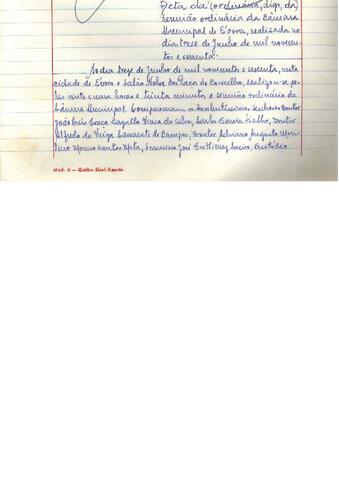 Acta da (ordinária, digo, da)
reunião ordinária da Câmara
Municipal de Évora, realizada no
dia treze de Junho de mil novecen-
tos e sessenta:
No dia treze de Junho de mil novecentos e sessenta, nesta
cidade de Évora e Salão Nobre dos Paços do Concelho, realizou-se pe-
las vinte e uma horas e trinta minutos a reunião ordinária da
Câmara Municipal. Compareceram os Excelentíssimos Senhores Doutor
João Luís Vieira da Silva, Carlos Doutor
Alfredo da Veiga Camarate de Campos, Doutor Adriano Augusto Mon-
teiro Moreno Santos Mota, Francisco José Gutierrez Eustódio
Mod. 6 —